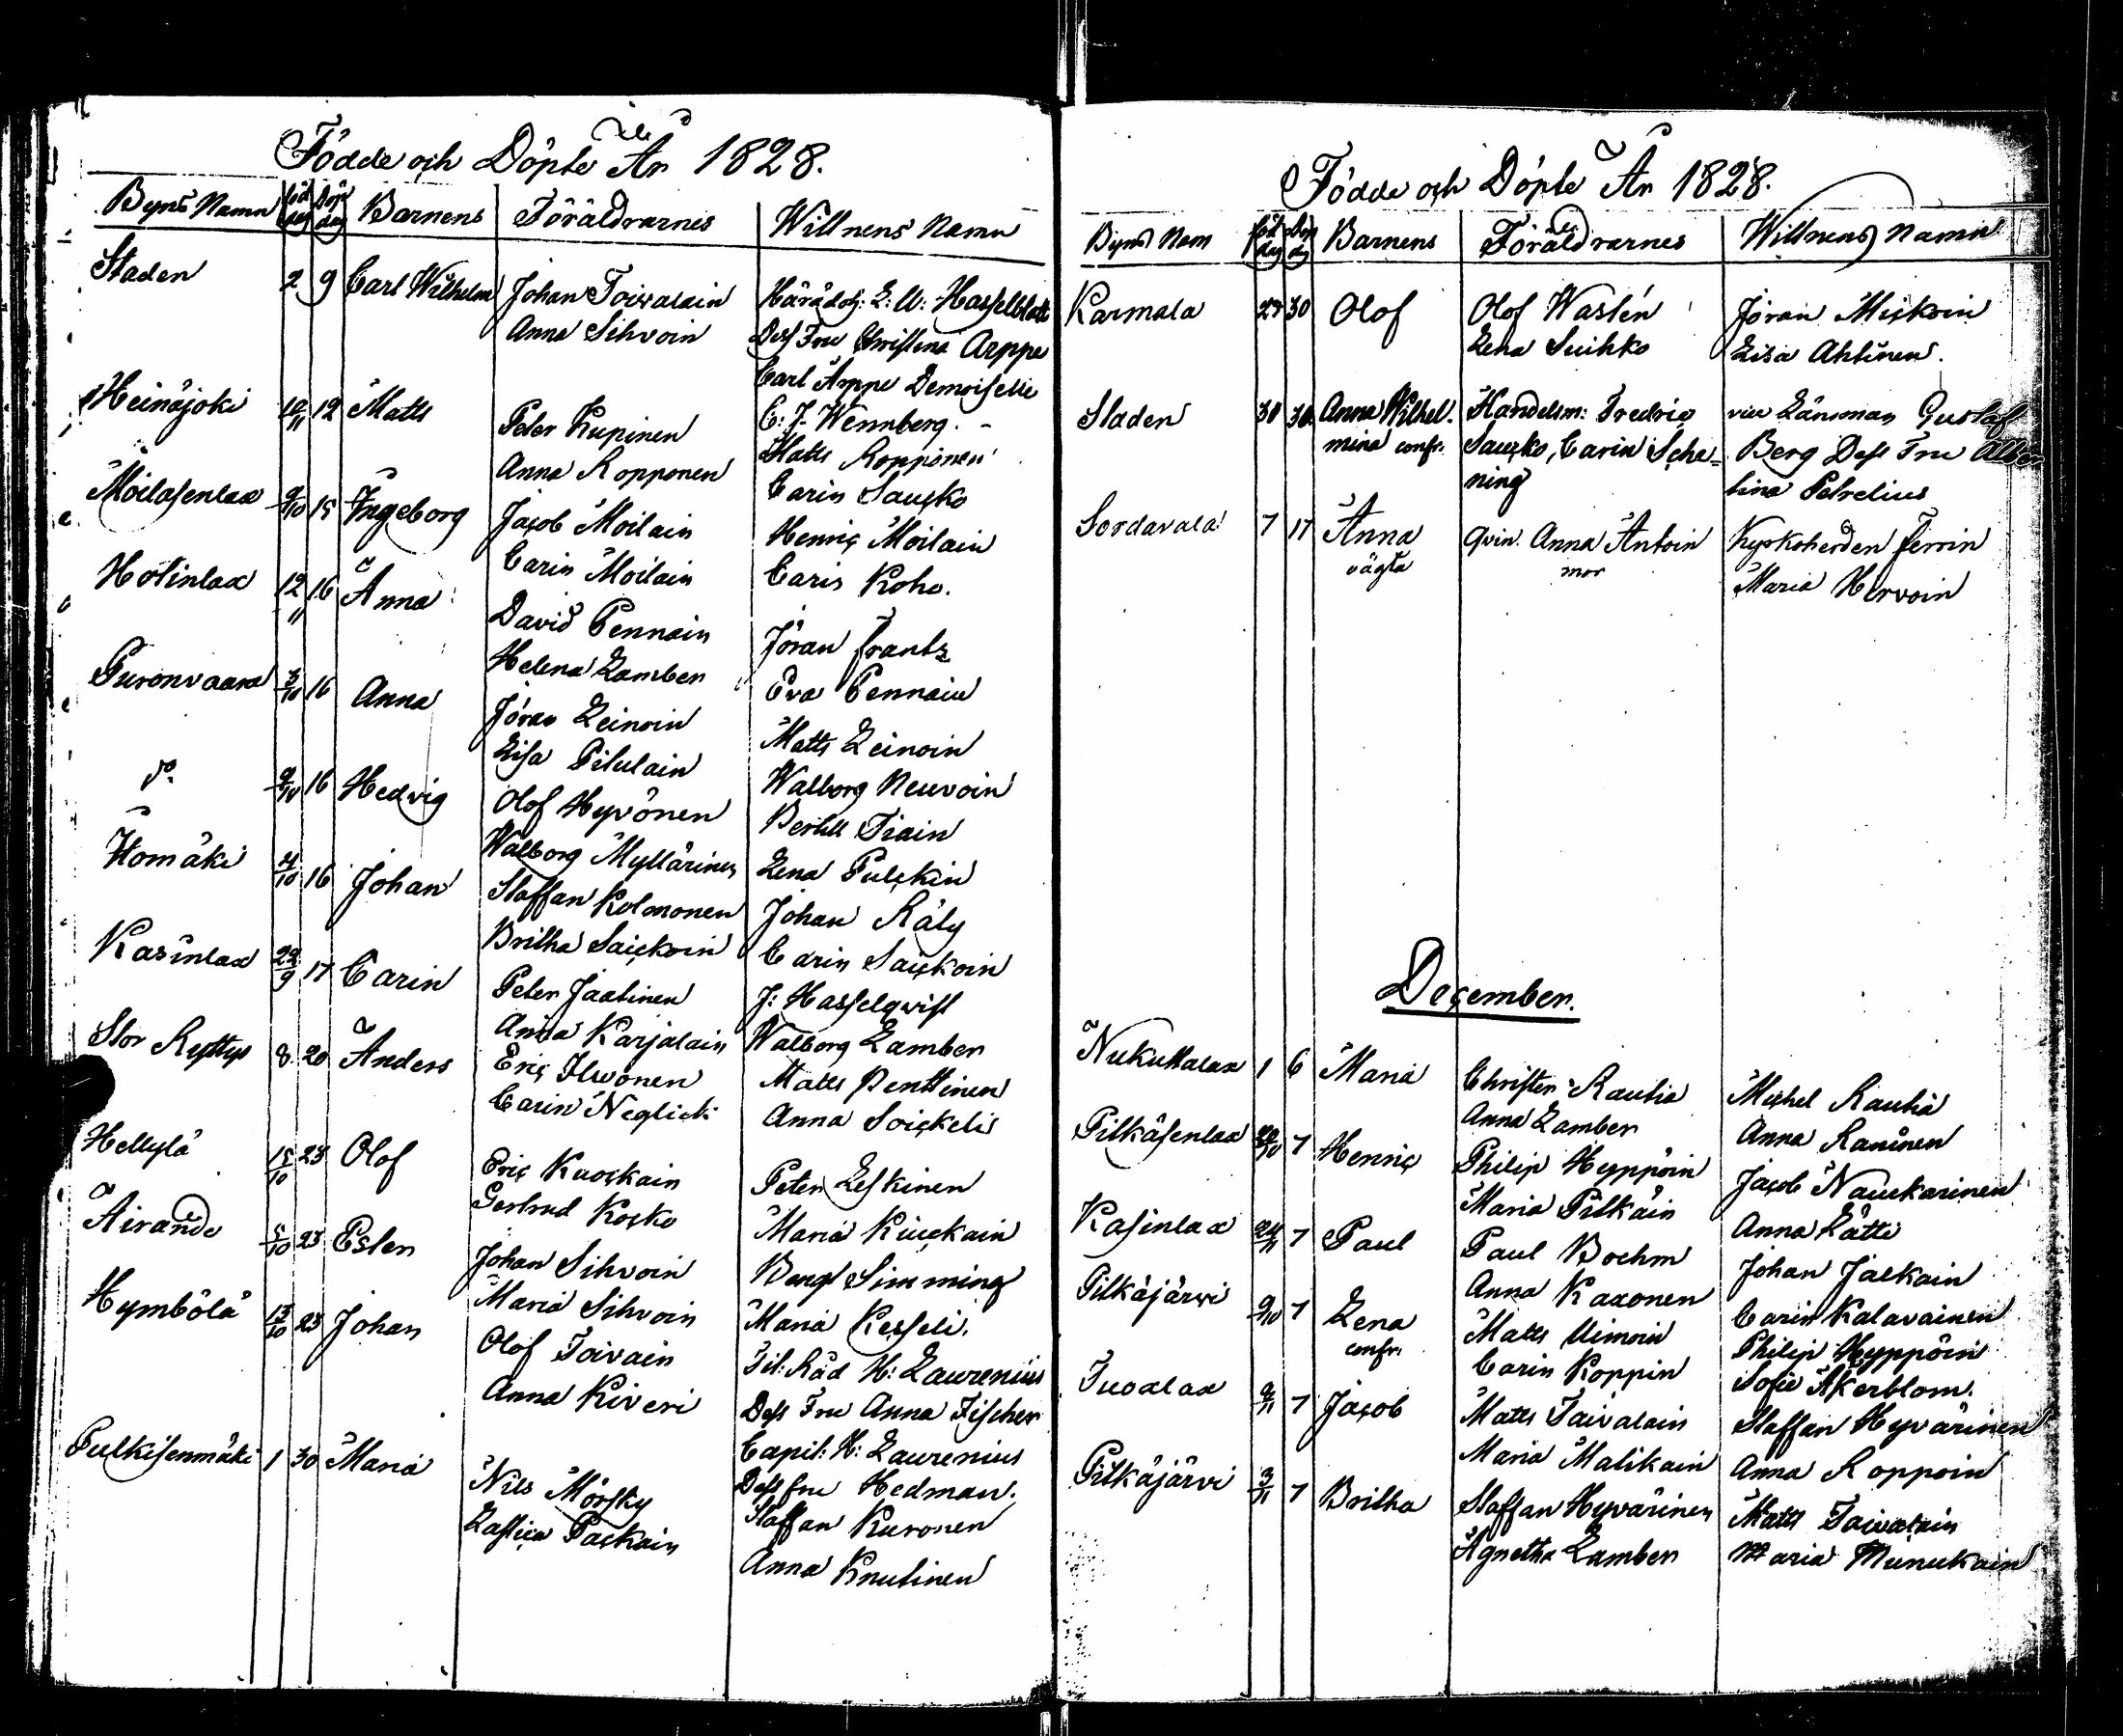 Födde och Döpte År 1828.
Byns Namn Föd dag Döp dag Barnens Föräldrarnes Wittnens Namn
Staden 2 9 Carl Wilhelm Johan Toivalain Häradsh: E: U: Hasselblatt
Anna Sihvoin Dess Fru Christina Arppe
Carl Arppe Demoiselle
Heinäjoki 10/11 12 Matts Peter Kupinen C: J. Wennberg.
Anna Ropponen Matts Ropponen
Carin Saucko
Moilasenlax 9/10 15 Ingeborg Jacob Moilain Henric Moilain
Carin Moilain Carin Koho.
Hotinlax 12/11 16 Anna David Pennain Jöran Frantz
Helena Lamber Eva Pennain
Puronvaara 3/10 16 Anna Jöran Leinoin Matts Leinoin
Lisa Pilulain Walborg Neuvoin
do 9/10 16 Hedvig Olof Hyvönen Bertill Tiain
Walborg Myllärinen Lena Pulckin
Homäki 4/10 16 Johan Staffan Kolmonen Johan Räty
Britha Saickoin Carin Saickoin
Kasinlax 29/9 17 Carin Peter Jaatinen J: Hasselqvist
Anna Karjalain Walborg Lamber
Stor Ryttys 8 20 Anders Eric Ilwonen Matts Penttinen
Carin Neglick Anna Soickeli
Hellylä 15/10 23 Olof Eric Kuockain Peter Leskinen
Gertrud Kocko Maria Kuickain
Airande 5/10 23 Ester Johan Sihvoin Bengt Simming
Maria Sihvoin Maria Kesseli.
Hymbölä 13/10 23 Johan Olof Toivain Tit: Råd H: Laurenius
Anna Kiveri Dess Fru Anna Fischer
Capit: H: Laurenius
Dess fru Hedman.
Pulkisenmäki 1 30 Maria Nils Mörsky Staffan Kuronen
Packain Anna Knutinen
Födde och Döpte År 1828.
Byns Nam Föd dag Döp dag Barnens Föräldrarnes Wittnens Namn
Karmala 27 30 Olof Olof Waslén Jöran Mickoin
Lena Suihko Lisa Ahtinen.
Staden 30 30 Anna Wilhel. Handelsm: Fredric vice Länsman Gustaf
mina confr. Saucko, Carin Sche= Berg Dess Fru Alber
ning tina Petrelius
Sordavala 7 17 Anna qvin. Anna Antoin Kyrkoherden Ferrin
oägta mor Maria Hirvoin
December.
Nukuttalax 1 6 Maria Christer Rautia Michel Rautia
Anna Lamber Anna Raninen
Pitkäsenlax 20/10 7 Henric Philip Hyppöin Jacob Nauckarinen
Maria Pitkäin Anna Lätti
Kasinlax 24/11 7 Paul Paul Boehm Johan Jalkain
Anna Kaxonen Carin Kalavainen
Pitkäjärvi 9/10 7 Lena Matts Uimoin Philip Hyppöin
confr. Carin Koppin Sofie Åkerblom.
Tuoxlax 9/11 7 Jacob Matts Taivalain Staffan Hyvärinen
Maria Malikain Anna Roppoin
Pitkäjärvi 3/11 7 Britha Staffan Hyvärinen Matts Taivalain
Agnetha Lamber Maria Munuckain